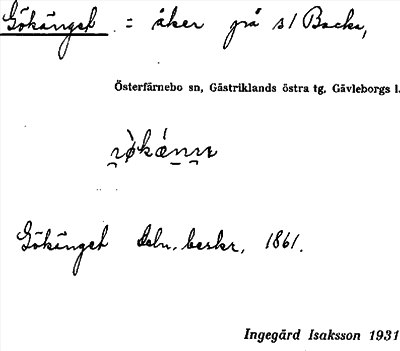 Gökänget = åker på s/ Backa,
Österfärnebo sn, Gästriklands östra tg, Gävleborgs l.
Gökänget Deln. beskr. 1861.
Ingegärd Isaksson 1931